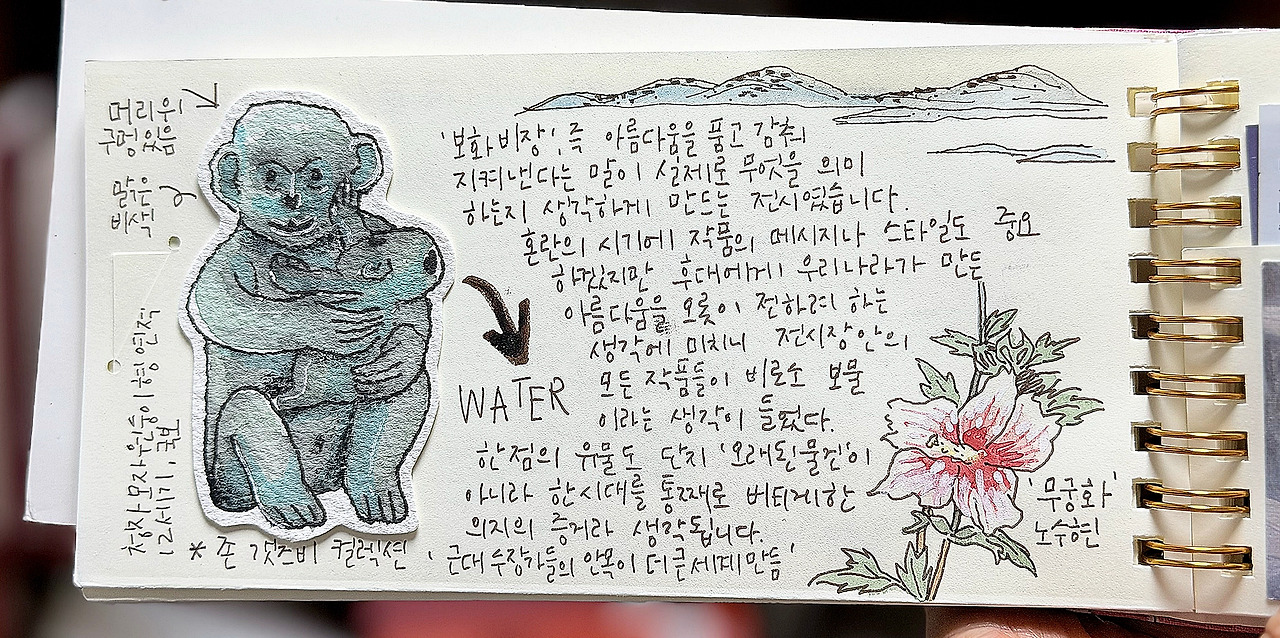 머리위
구멍있음
맑은
비색
청자 모자 원숭이형 연적
12세기, 국보
'보화비장', 즉 아름다움을 품고 감춰
지켜낸다는 말이 실제로 무엇을 의미
하는지 생각하게 만드는 전시였습니다.
혼란의 시기에 작품의 메시지나 스타일도 중요
하겠지만 후대에게 우리나라가 만든
아름다움을 오롯이 전하려 하는
생각에 미치니 전시장 안의
모든 작품들이 비로소 보물
이라는 생각이 들었다.
WATER
한점의 유물도 단지 '오래된 물건'이
아니라 한시대를 통째로 버티게한
의지의 증거라 생각됩니다.
* 존 갯즈비 컬렉션 '근대 수장가들의 안목이 더 큰 세계 만듦'
'무궁화'
노수현